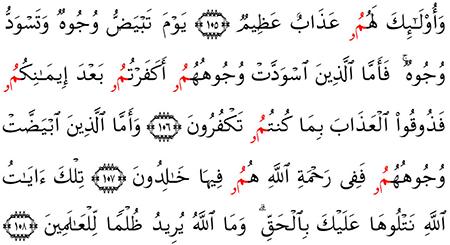 وَأُوْلَـٰٓئِكَ لَهُمُۥ عَذَابٌ عَظِيمٌ ١٠٥ يَوْمَ تَبْيَضُّ وُجُوهٌ وَتَسْوَدُّ
وُجُوهٌۚ فَأَمَّا ٱلَّذِينَ ٱسْوَدَّتْ وُجُوهُهُمُۥ أَكَفَرْتُمُۥ بَعْدَ إِيمَـٰنِكُمُۥ
فَذُوقُوا۟ ٱلْعَذَابَ بِمَا كُنتُمُۥ تَكْفُرُونَ ١٠٦ وَأَمَّا ٱلَّذِينَ ٱبْيَضَّتْ
وُجُوهُهُمُۥ فَفِى رَحْمَةِ ٱللَّهِ هُمُۥ فِيهَا خَـٰلِدُونَ ١٠٧ تِلْكَ ءَايَـٰتُ
ٱللَّهِ نَتْلُوهَا عَلَيْكَ بِٱلْحَقِّۗ وَمَا ٱللَّهُ يُرِيدُ ظُلْمًا لِّلْعَـٰلَمِينَ ١٠٨